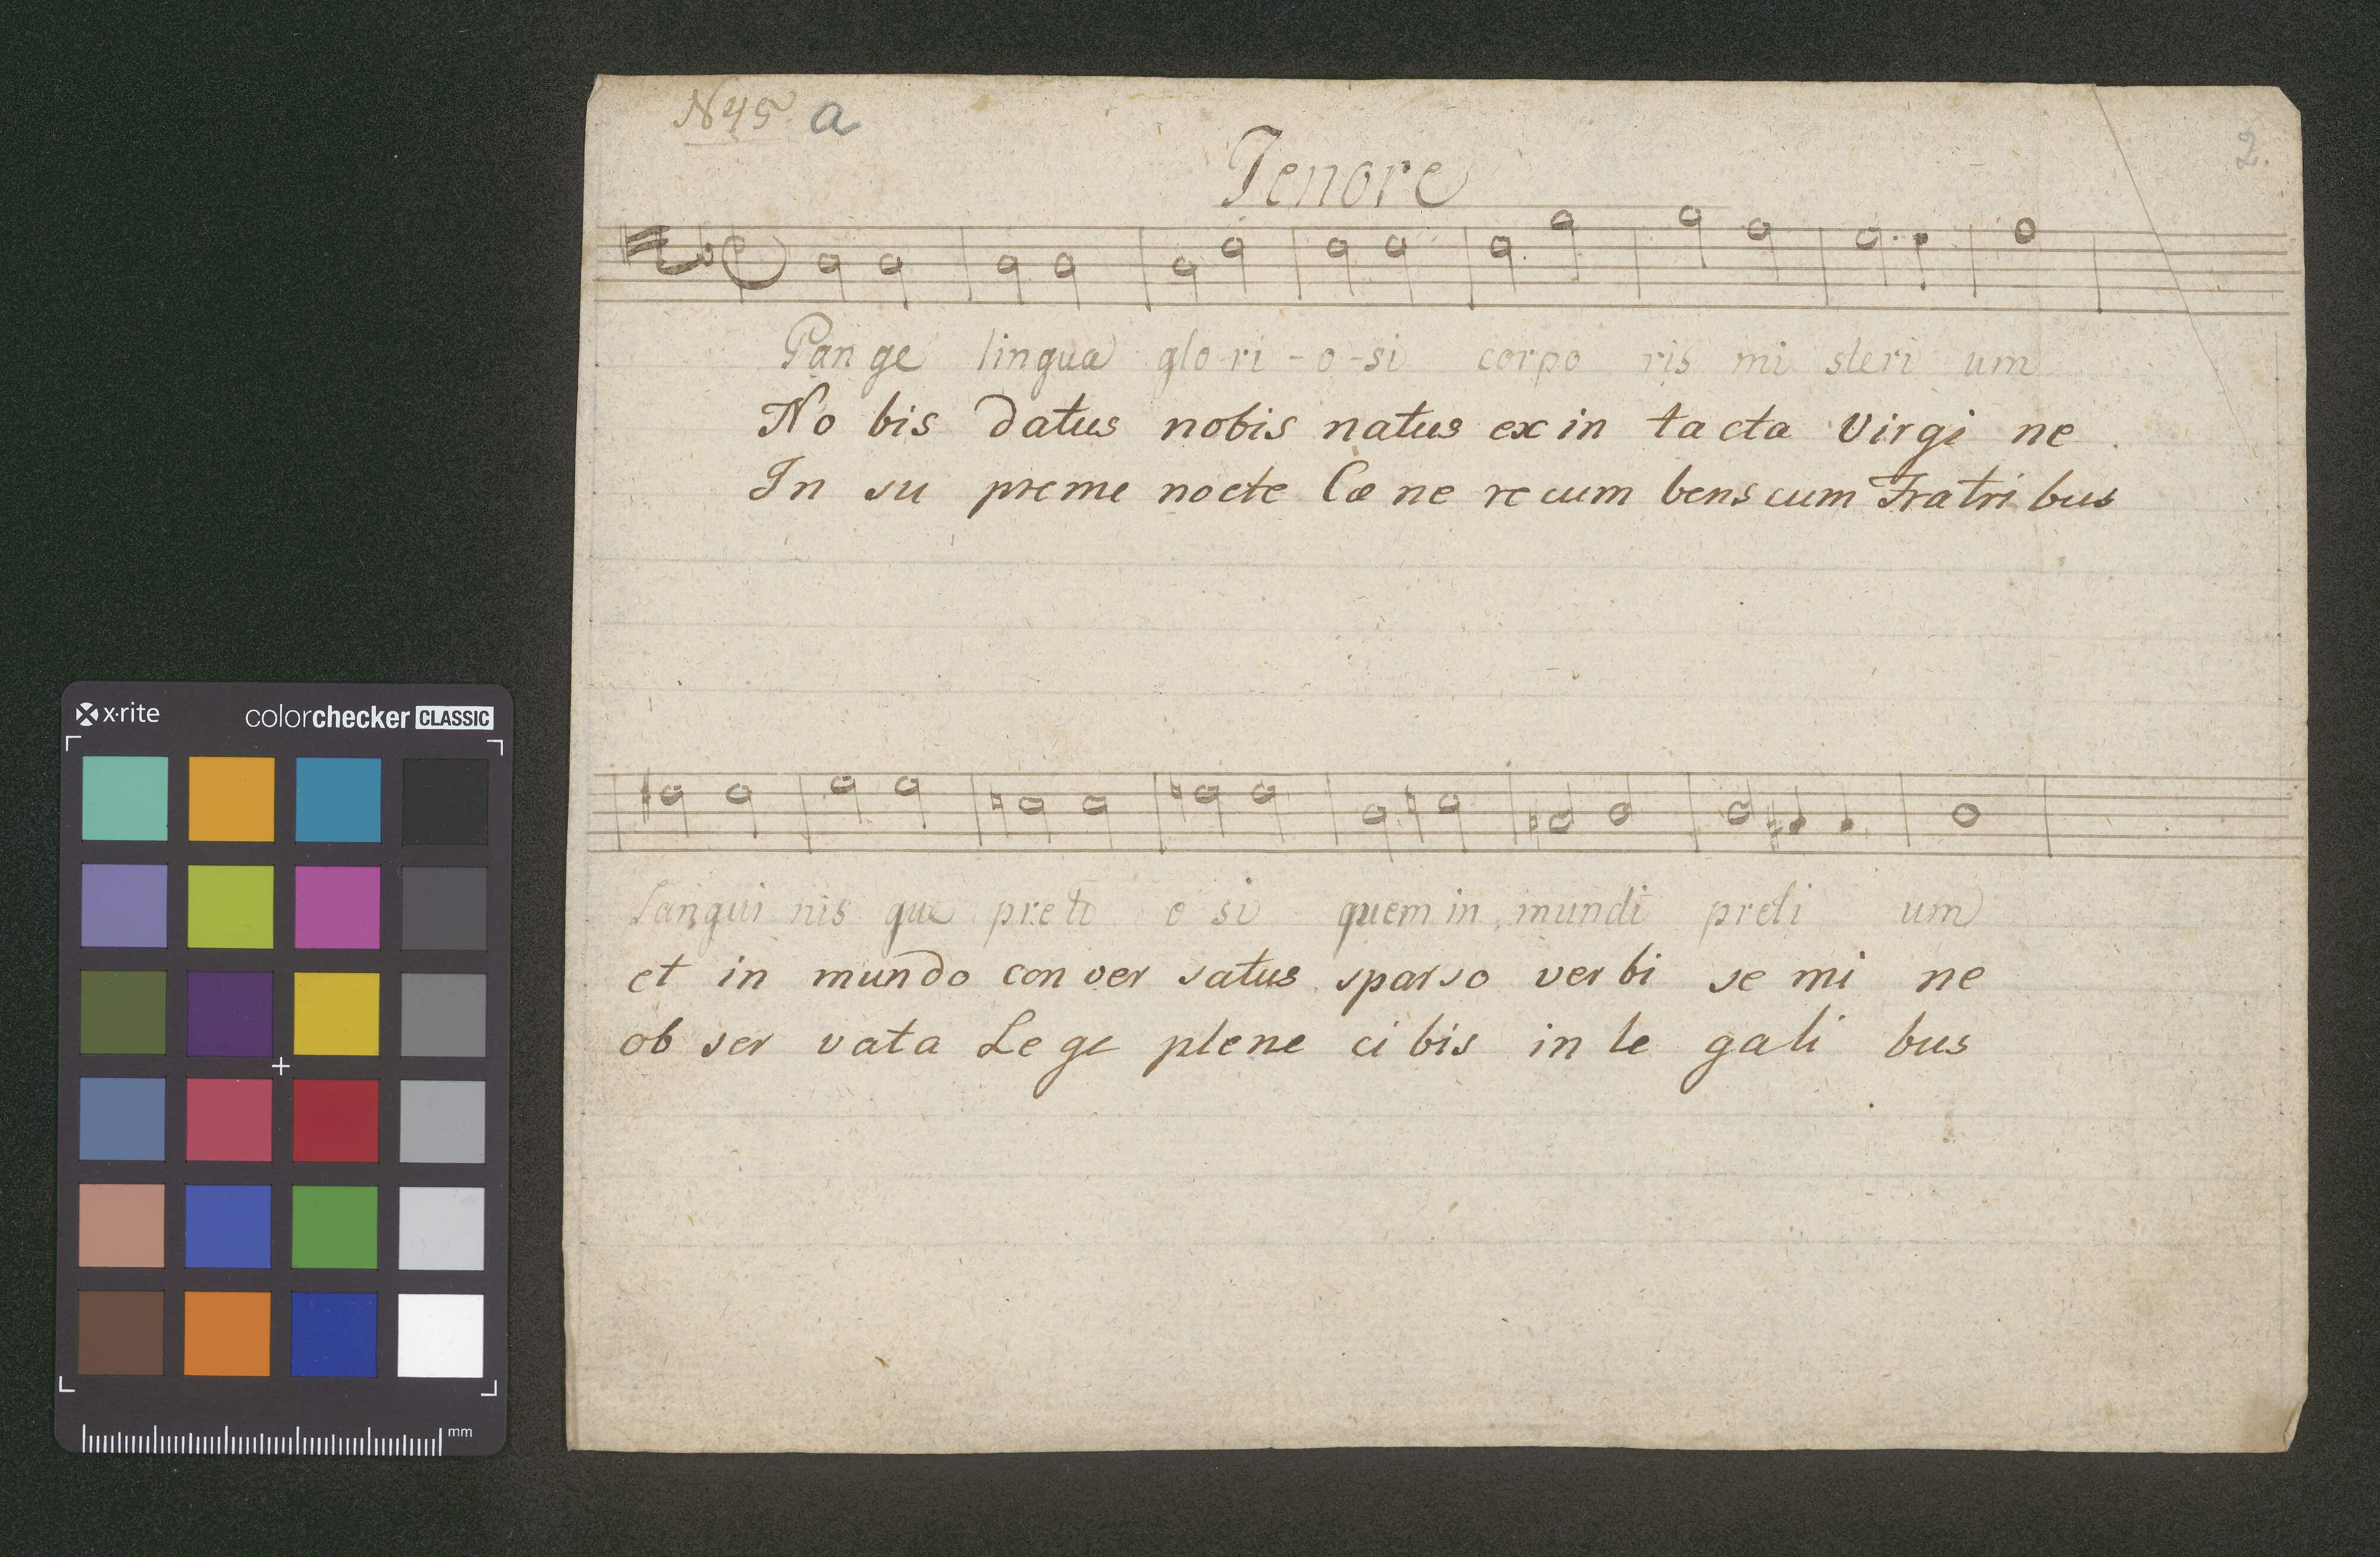 N 45 a
2.
Tenore
Pan ge lingua glo-ri-o-si corpo ris mi steri um
No bis datus nobis natus ex in ta cta Virgi ne
In su preme nocte Cœ ne re cum bens cum Fratri bus
Sangui nis que preti o si quem in mundi preti um
et in mundo con ver satus sparso ver bi se mi ne
ob ser vata Le ge plene ci bis in le gali bus
x·rite colorchecker CLASSIC
mm